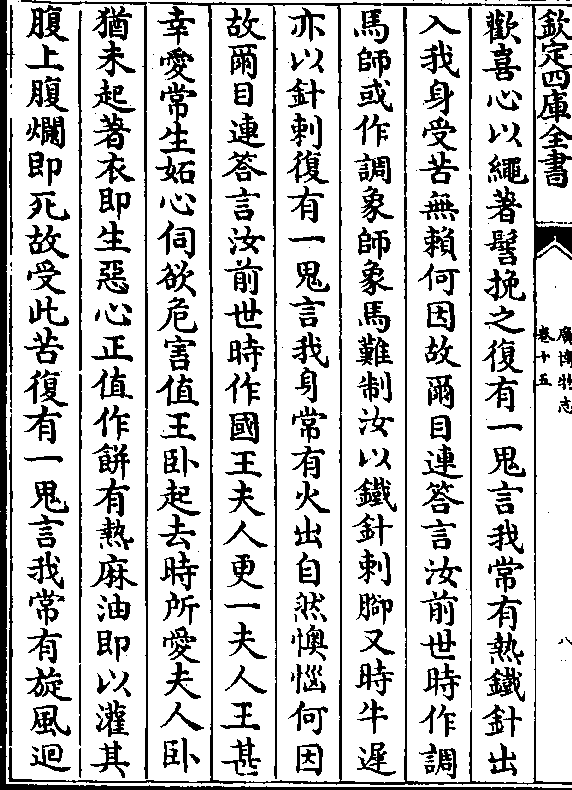 欽定四庫全書
廣博物志
卷十五
八
歡喜心以繩著髻挽之復有一鬼言我常有熱鐵針出
入我身受苦無賴何因故爾目連答言汝前世時作調
馬師或作調象師象馬難制汝以鐵針刺腳又時牛遲
亦以針刺復有一鬼言我身常有火出自然懊惱何因
故爾目連答言汝前世時作國王夫人更一夫人王甚
幸愛常生妬心伺欲危害值王卧起去時所愛夫人卧
猶未起著衣即生惡心正值作餅有熱麻油即以灌其
腹上腹爛即死故受此苦復有一鬼言我常有旋風迴